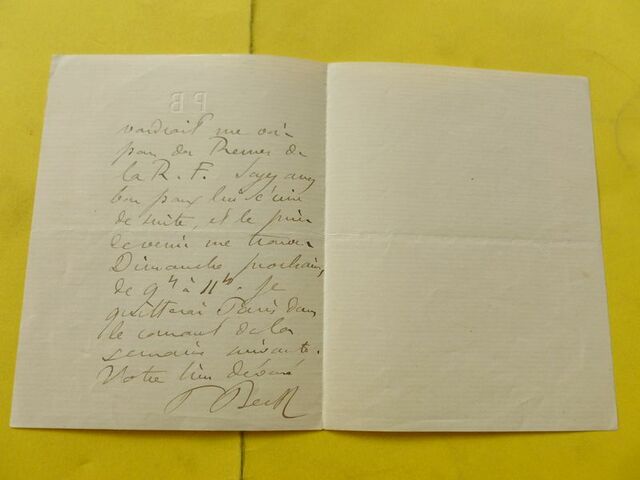 P B
voudrait me voir
pour des Primes de
la R. F. Soyez assez
bon pour lui écrire
de suite, et le prier
de venir me trouver
Dimanche prochain,
de 9h à 11h. Je
quitterai Paris dans
le courant de la
semaine suivante.
Votre bien dévoué
P Bert